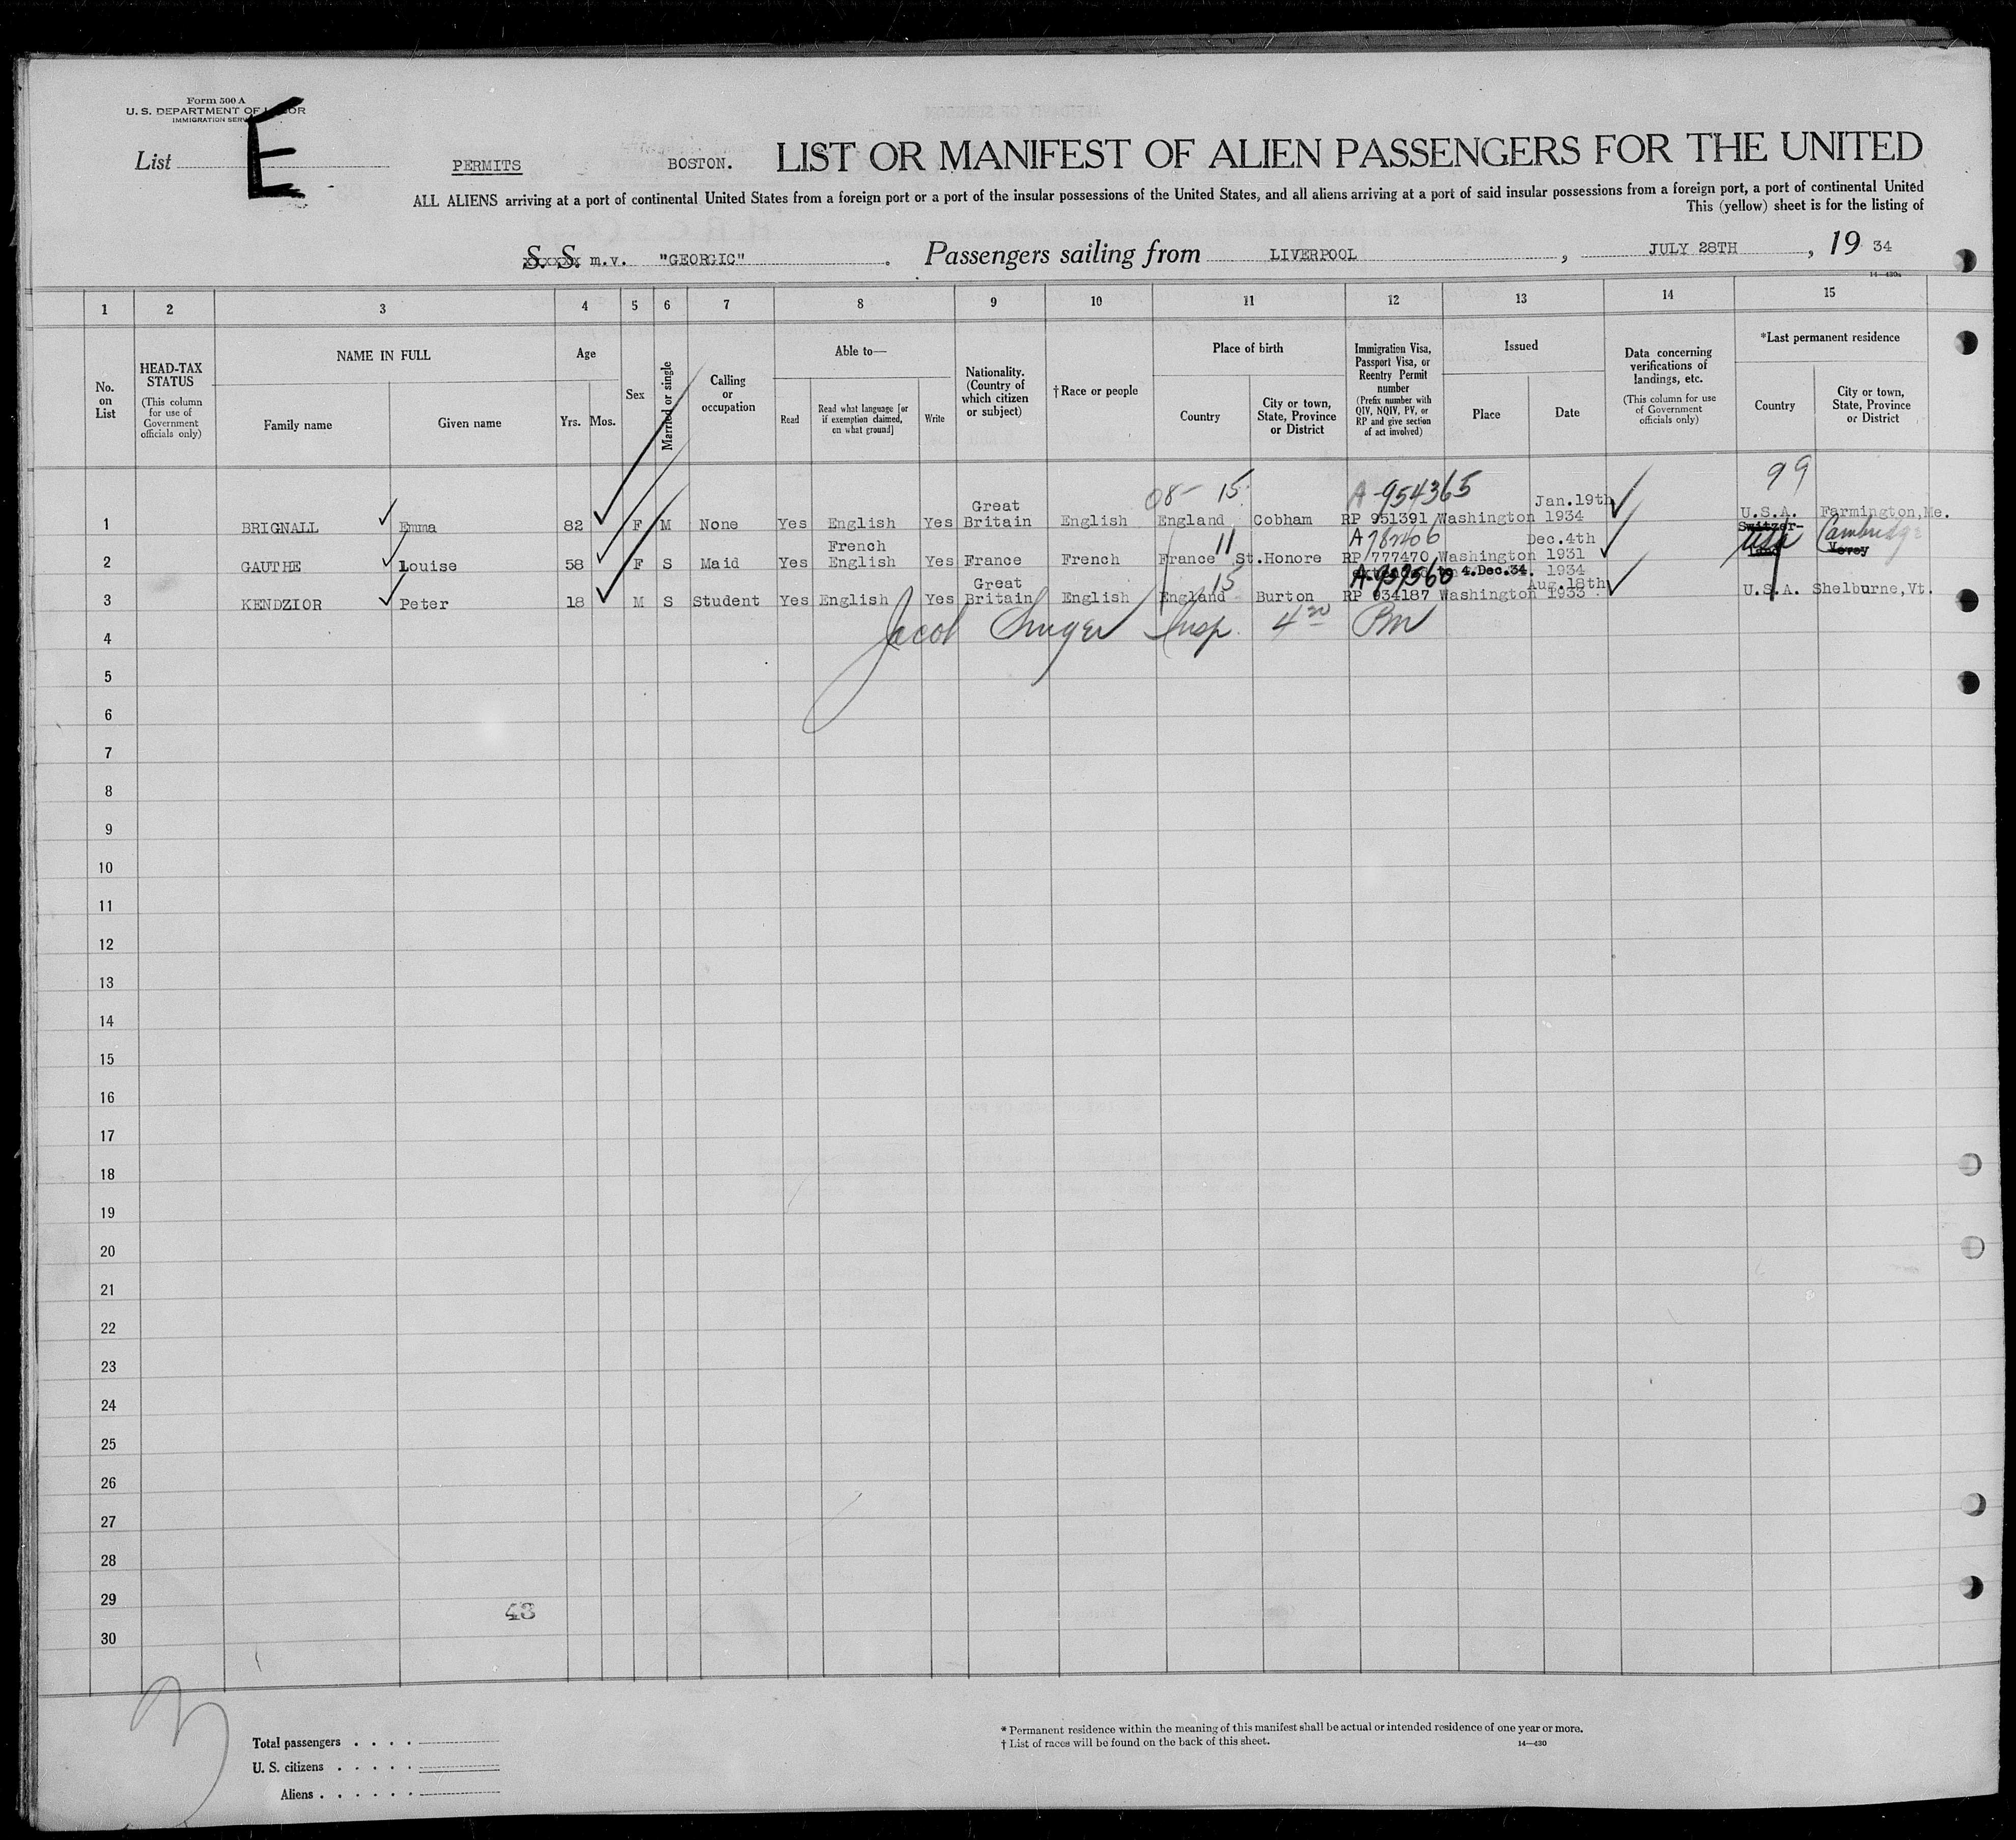 Form 500 A
U. S. DEPARTMENT OF LABOR
IMMIGRATION SERV
List E PERMITS BOSTON. LIST OR MANIFEST OF ALIEN PASSENGERS FOR THE UNITED
ALL ALIENS arriving at a port of continental United States from a foreign port or a port of the insular possessions of the United States, and all aliens arriving at a port of said insular possessions from a foreign port, a port of continental United
This (yellow) sheet is for the listing of
S. S. m.v. "GEORGIC" Passengers sailing from LIVERPOOL, JULY 28TH, 19 34
14—430a
1 2 3 4 5 6 7 8 9 10 11 12 13 14 15
No. on List
HEAD-TAX STATUS
(This column for use of Government officials only)
NAME IN FULL
Family name Given name
Age
Yrs. Mos.
Sex
Married or single
Calling or occupation
Able to—
Read
Read what language [or if exemption claimed, on what ground]
Write
Nationality. (Country of which citizen or subject)
†Race or people
Place of birth
Country
City or town, State, Province or District
Immigration Visa, Passport Visa, or Reentry Permit number
(Prefix number with QIV, NQIV, PV, or RP and give section of act involved)
Issued
Place Date
Data concerning verifications of landings, etc.
(This column for use of Government officials only)
*Last permanent residence
Country
City or town, State, Province or District
08- 15 A-954365 99
1 BRIGNALL Emma 82 F M None Yes English Yes Great Britain English England Cobham RP 951391 Washington Jan.19th 1934 U.S.A. Farmington,Me.
11 A78406
2 GAUTHE Louise 58 F S Maid Yes French English Yes France French France St.Honore RP 777470 Washington Dec.4th 1931 Switzer-land USA Vevey Cambridge
4.Dec.34. 1934
15 A-959560
3 KENDZIOR Peter 18 M S Student Yes English Yes Great Britain English England Burton RP 934187 Washington Aug.18th 1933 U.S.A. Shelburne,Vt.
4 Jacob Insp.
5
6
7
8
9
10
11
12
13
14
15
16
17
18
19
20
21
22
23
24
25
26
27
28
29
43
30
3
Total passengers
U. S. citizens
Aliens
* Permanent residence within the meaning of this manifest shall be actual or intended residence of one year or more.
† List of races will be found on the back of this sheet.
14—430